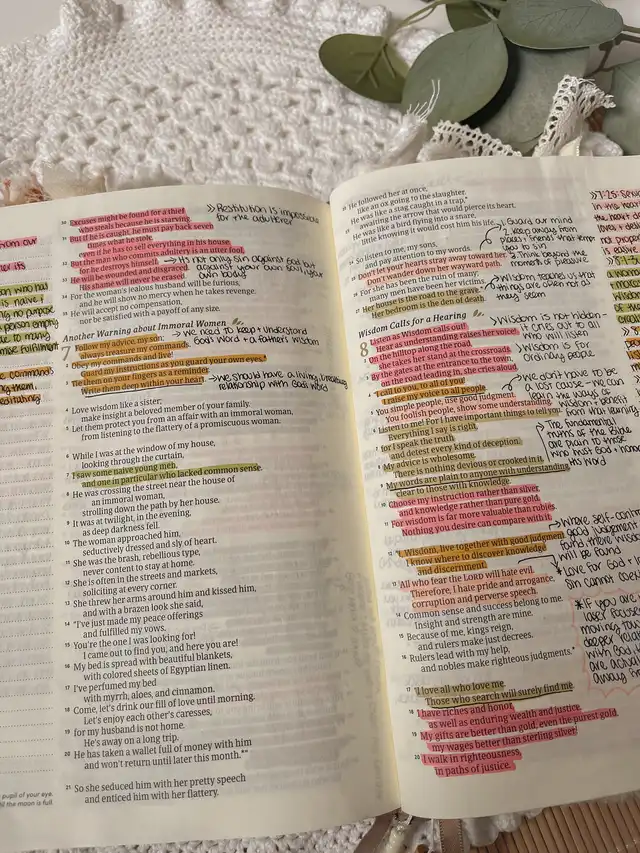 from our
³⁰ Excuses might be found for a thief
who steals because he is starving.
³¹ But if he is caught, he must pay back seven
times what he stole,
even if he has to sell everything in his house.
³² But the man who commits adultery is an utter fool,
for he destroys himself.
³³ He will be wounded and disgraced.
His shame will never be erased.
³⁴ For the woman's jealous husband will be furious,
and he will show no mercy when he takes revenge.
³⁵ He will accept no compensation,
nor be satisfied with a payoff of any size.
>> Restitution is impossible
for the adulterer
→ It's not only sin against God but
against your own soul & your
own body
Another Warning about Immoral Women
→ we need to keep + understand
God's Word + a father's wisdom
7 Follow my advice, my son;
always treasure my commands.
² Obey my commands and live!
Guard my instructions as you guard your own eyes.*
³ Tie them on your fingers as a reminder.
Write them deep within your heart.
→ we should have a living, breathing
relationship with God's Word
⁴ Love wisdom like a sister;
make insight a beloved member of your family.
⁵ Let them protect you from an affair with an immoral woman,
from listening to the flattery of a promiscuous woman.
⁶ While I was at the window of my house,
looking through the curtain,
⁷ I saw some naive young men,
and one in particular who lacked common sense.
⁸ He was crossing the street near the house of
an immoral woman,
strolling down the path by her house.
⁹ It was at twilight, in the evening,
as deep darkness fell.
¹⁰ The woman approached him,
seductively dressed and sly of heart.
¹¹ She was the brash, rebellious type,
never content to stay at home.
¹² She is often in the streets and markets,
soliciting at every corner.
¹³ She threw her arms around him and kissed him,
and with a brazen look she said,
¹⁴ "I've just made my peace offerings
and fulfilled my vows.
¹⁵ You're the one I was looking for!
I came out to find you, and here you are!
¹⁶ My bed is spread with beautiful blankets,
with colored sheets of Egyptian linen.
¹⁷ I've perfumed my bed
with myrrh, aloes, and cinnamon.
¹⁸ Come, let's drink our fill of love until morning.
Let's enjoy each other's caresses,
¹⁹ for my husband is not home.
He's away on a long trip.
²⁰ He has taken a wallet full of money with him
and won't return until later this month.*"
²¹ So she seduced him with her pretty speech
and enticed him with her flattery.
pupil of your eye.
the moon is full.
²² He followed her at once,
like an ox going to the slaughter.
He was like a stag caught in a trap,*
²³ awaiting the arrow that would pierce its heart.
He was like a bird flying into a snare,
little knowing it would cost him his life.
²⁴ So listen to me, my sons,
and pay attention to my words.
²⁵ Don't let your hearts stray away toward her.
Don't wander down her wayward path.
²⁶ For she has been the ruin of many;
many men have been her victims.
²⁷ Her house is the road to the grave.*
Her bedroom is the den of death.
1. Guard our mind
2. keep away from
places + friends that tempt
you to sin
3. Think beyond the
moments of pleasure
→ Wisdom teaches us that
things are often not as
they seem
Wisdom Calls for a Hearing
→ Wisdom is not hidden-
it cries out to all
who will listen
→ Wisdom is for
Ordinary people
8 Listen as Wisdom calls out!
Hear as understanding raises her voice!
² On the hilltop along the road,
she takes her stand at the crossroads.
³ By the gates at the entrance to the town,
on the road leading in, she cries aloud,
⁴ "I call to you, to all of you!
I raise my voice to all people.
⁵ You simple people, use good judgment.
You foolish people, show some understanding.
⁶ Listen to me! For I have important things to tell you.
Everything I say is right,
⁷ for I speak the truth
and detest every kind of deception.
⁸ My advice is wholesome.
There is nothing devious or crooked in it.
⁹ My words are plain to anyone with understanding,
clear to those with knowledge.
¹⁰ Choose my instruction rather than silver,
and knowledge rather than pure gold.
¹¹ For wisdom is far more valuable than rubies.
Nothing you desire can compare with it.
→ we don't have to be
a lost cause - we can
learn the ways of
wisdom + benefit
from that learning
→ The fundamental
truths of the Bible
are plain to those
who trust God + honor
His Word
¹² "I, Wisdom, live together with good judgment.
I know where to discover knowledge
and discernment.
¹³ All who fear the LORD will hate evil.
Therefore, I hate pride and arrogance,
corruption and perverse speech.
¹⁴ Common sense and success belong to me.
Insight and strength are mine.
¹⁵ Because of me, kings reign,
and rulers make just decrees.
¹⁶ Rulers lead with my help,
and nobles make righteous judgments.*
→ Where self-cont
good judgement
found, there wisdo
will be found
* Love for God +
sin cannot coex
* If you are
focus
moving tow
deeper relat
with God,
are actua
away fr
¹⁷ "I love all who love me.
Those who search will surely find me.
¹⁸ I have riches and honor,
as well as enduring wealth and justice.
¹⁹ My gifts are better than gold, even the purest gold,
my wages better than sterling silver!
²⁰ I walk in righteousness,
in paths of justice.